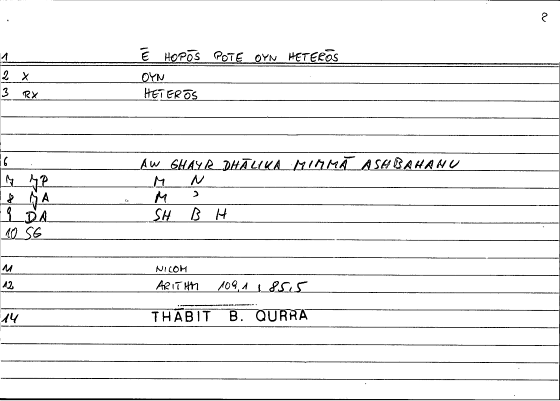 2
1 Ē HOPŌS POTE OYN HETERŌS
2 X OYN
3 RX HETERŌS
6 AW GHAYR DHĀLIKA MIMMĀ ASHBAHAHU
M N
8 M ʾ
9 DA SH B H
10 SG
11 NICOM
12 ARITHM 109,1 ; 85,5
14 THĀBIT B. QURRA